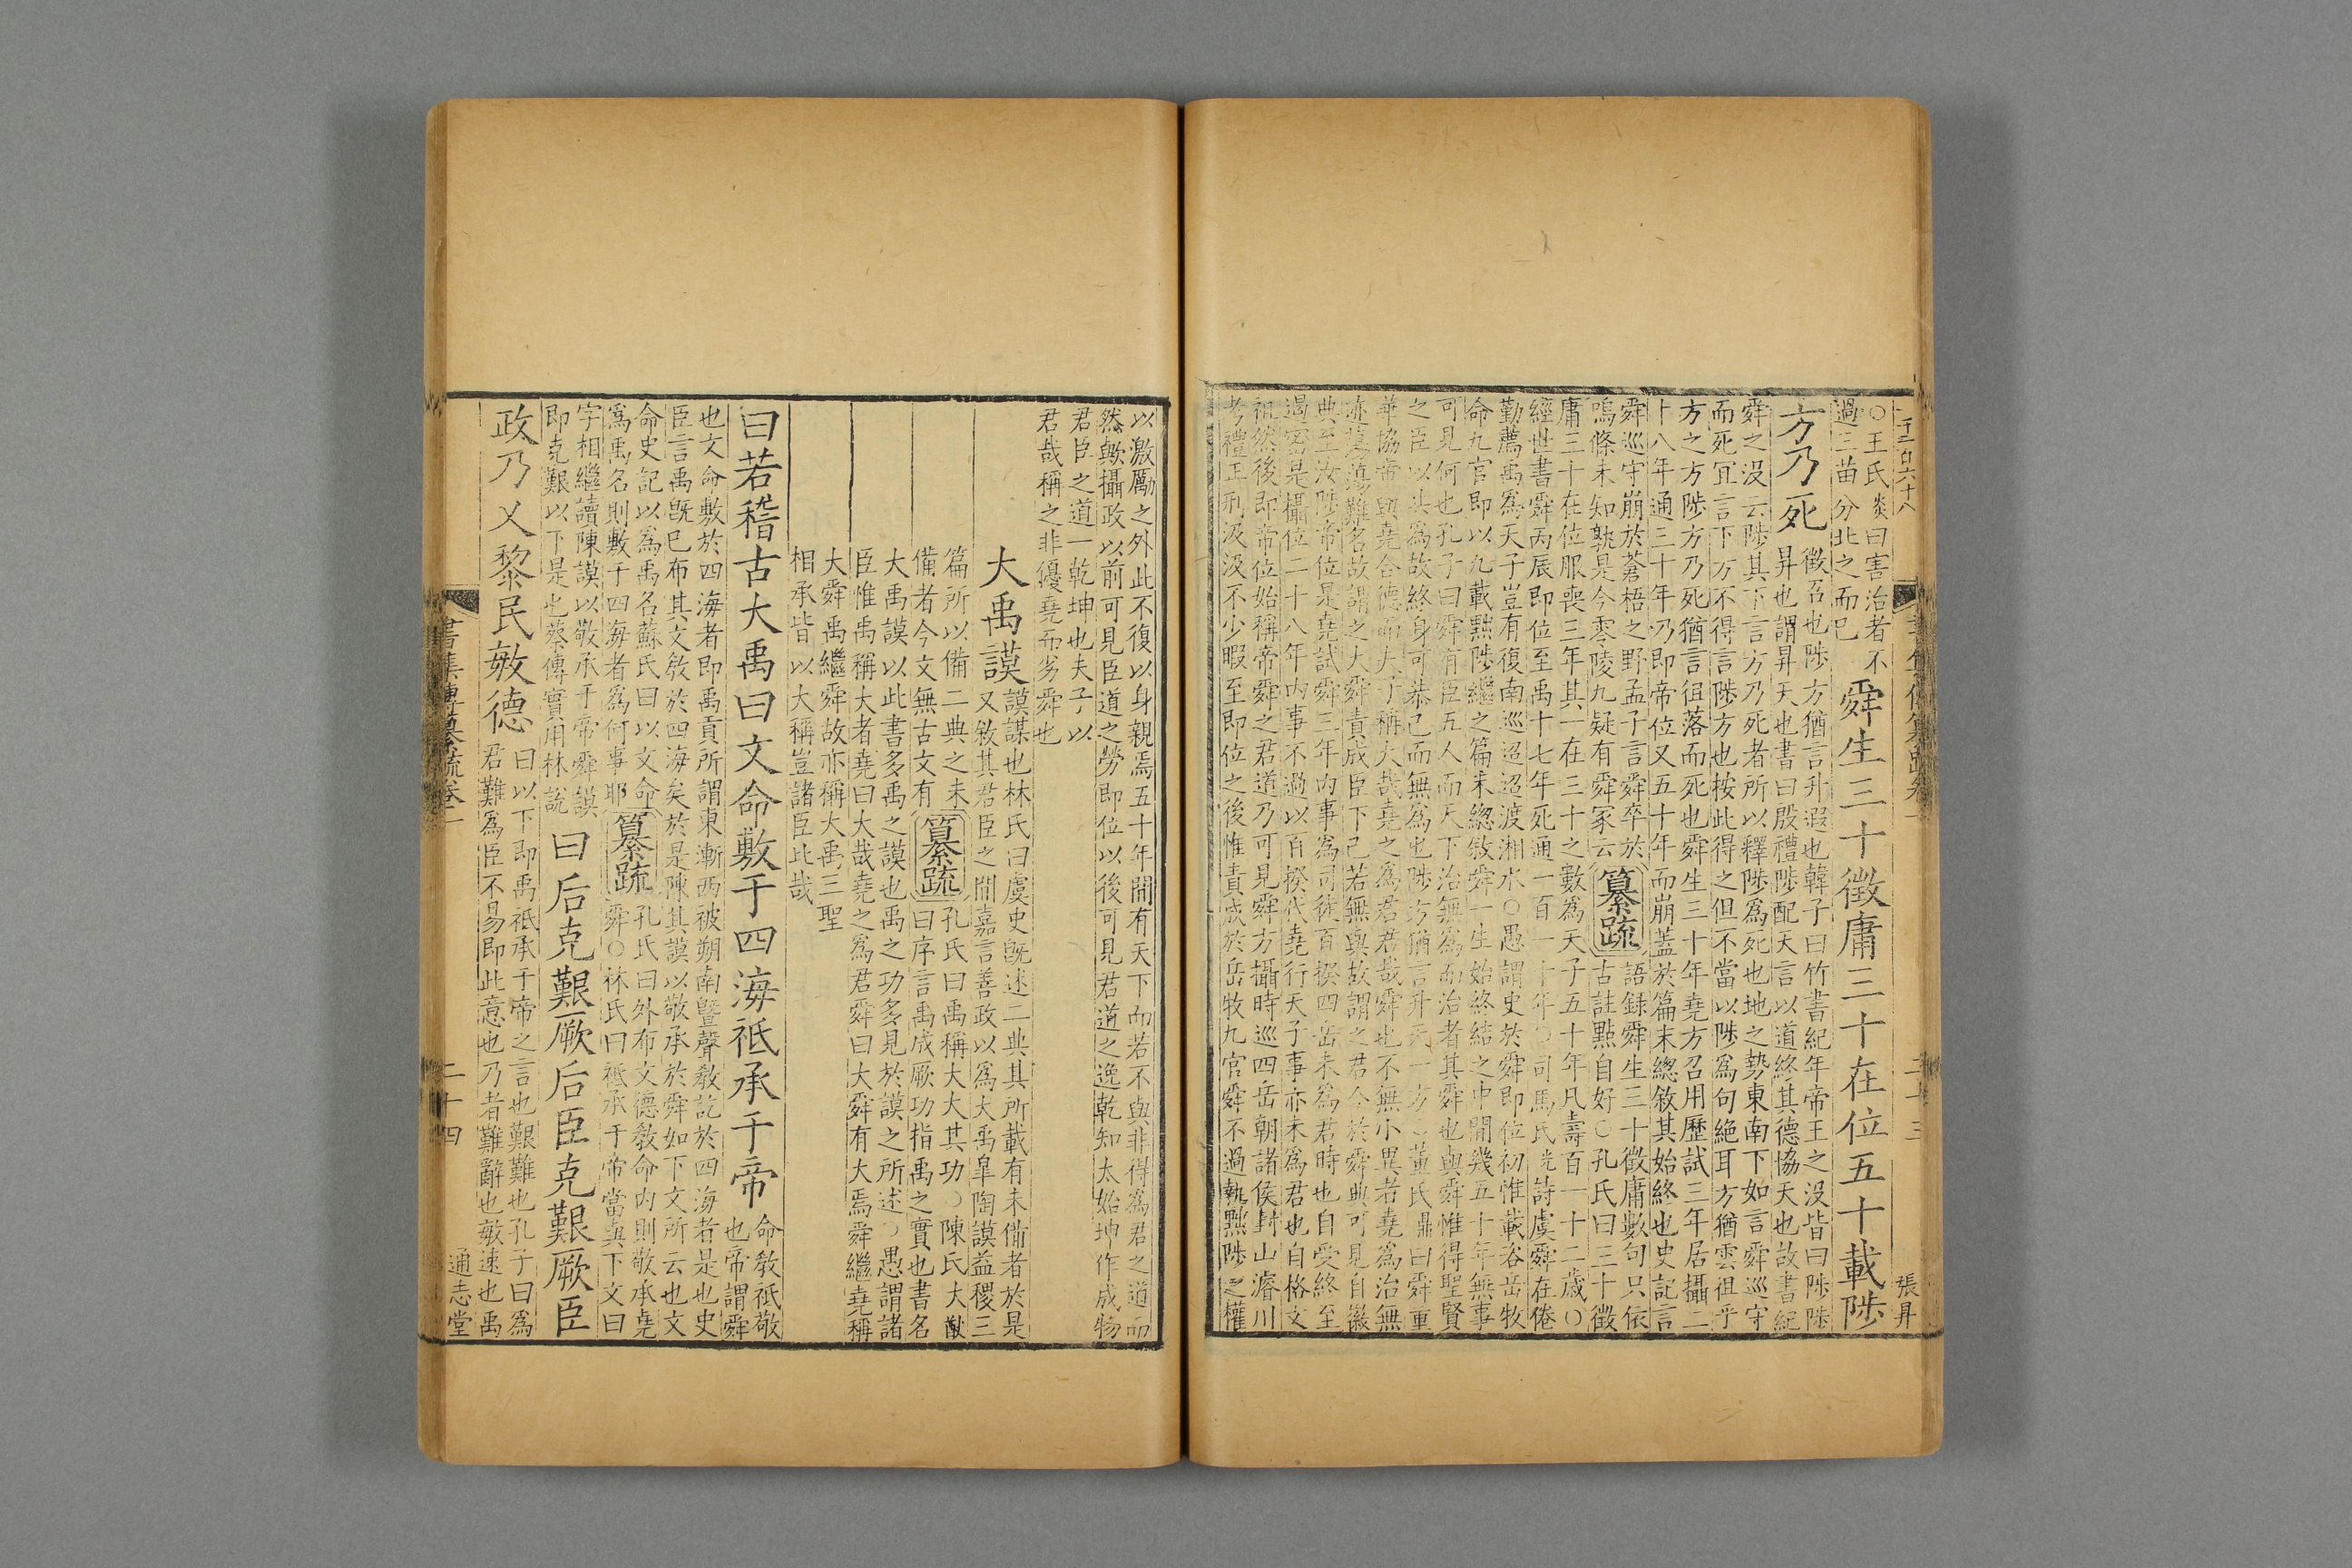 ○王氏炎曰害治者不
過三苗分北之而已
舜生三十徵庸三十在位五十載陟
方乃死
徵召也陟方猶言升遐也韓子曰竹書紀年帝王之沒皆曰陟陟
昇也謂昇天也書曰殷禮陟配天言以道終其德協天也故書紀
舜之沒云陟其下言方乃死者所以釋陟為死也地之勢東南下如言舜巡守
而死宜言下方不得言陟方也按此得之但不當以陟為句絕耳方猶雲徂乎
方之方陟方乃死猶言徂落而死也舜生三十年堯方召用歷試三年居攝二
十八年通三十年乃即帝位又五十年而崩蓋於篇末總敘其始終也史記言
舜巡守崩於蒼梧之野孟子言舜卒於
鳴條未知孰是今零陵九疑有舜冢云
纂疏
語録舜生三十徵庸數句只依
古註點自好○孔氏曰三十徵
庸三十在位服喪三年其一在三十之數為天子五十年凡壽百一十二歲○
經世書舜丙辰即位至禹十七年死通一百一十年○司馬氏光詩虞舜在倦
勤薦禹為天子豈有復南巡迢迢渡湘水○愚謂史於舜即位初惟載咨岳牧
命九官即以九載黜陟繼之篇末總敘舜一生始終結之中間幾五十年無事
可見何也孔子曰舜有臣五人而天下治無為而治者其舜也與舜惟得聖賢
之臣以共為故終身可恭己而無為也陟方猶言升天一方○董氏鼎曰舜重
華協帝與堯合德而夫子稱大哉堯之為君君哉舜也不無小異者堯為治無
迹蕩蕩難名故謂之大舜責成臣下己若無與故謂之君今於舜典可見自徽
典至汝陟帝位是堯試舜三年內事為司徒百揆四岳未為君時也自受終至
遏密是攝位二十八年內事不過以百揆代堯行天子事亦未為君也自格文
祖然後即帝位始稱帝舜之君道乃可見舜方攝時巡四岳朝諸侯封山濬川
考禮正刑汲汲不少暇至即位之後惟責成於岳牧九官舜不過執黜陟之權
張昇
以激勵之外此不復以身親焉五十年間有天下而若不與非得為君之道而
然歟攝政以前可見臣道之勞即位以後可見君道之逸乾知太始坤作成物
君臣之道一乾坤也夫子以
君哉稱之非優堯而劣舜也
大禹謨
謨謀也林氏曰虞史既述二典其所載有未備者於是
又敘其君臣之間嘉言善政以為大禹皋陶謨益稷三
篇所以備二典之未
備者今文無古文有
纂疏
孔氏曰禹稱大大其功○陳氏大猷
曰序言禹成厥功指禹之實也書名
大禹謨以此書多禹之謨也禹之功多見於謨之所述○愚謂諸
臣惟禹稱大者堯曰大哉堯之為君舜曰大舜有大焉舜繼堯稱
大舜禹繼舜故亦稱大禹三聖
相承皆以大稱豈諸臣比哉
曰若稽古大禹曰文命敷于四海祗承于帝
命教祗敬
也帝謂舜
也文命敷於四海者即禹貢所謂東漸西被朔南暨聲教訖於四海者是也史
臣言禹既已布其文教於四海矣於是陳其謨以敬承於舜如下文所云也文
命史記以為禹名蘇氏曰以文命
為禹名則敷于四海者為何事耶
纂疏
孔氏曰外布文德教命內則敬承堯
舜○林氏曰祗承于帝當與下文曰
字相繼讀陳謨以敬承于帝舜謨
即克艱以下是也蔡傳實用林說
曰后克艱厥后臣克艱厥臣
政乃乂黎民敏德
曰以下即禹祗承于帝之言也艱難也孔子曰為
君難為臣不易即此意也乃者難辭也敏速也禹
書集傳纂疏卷一
二十四
通志堂